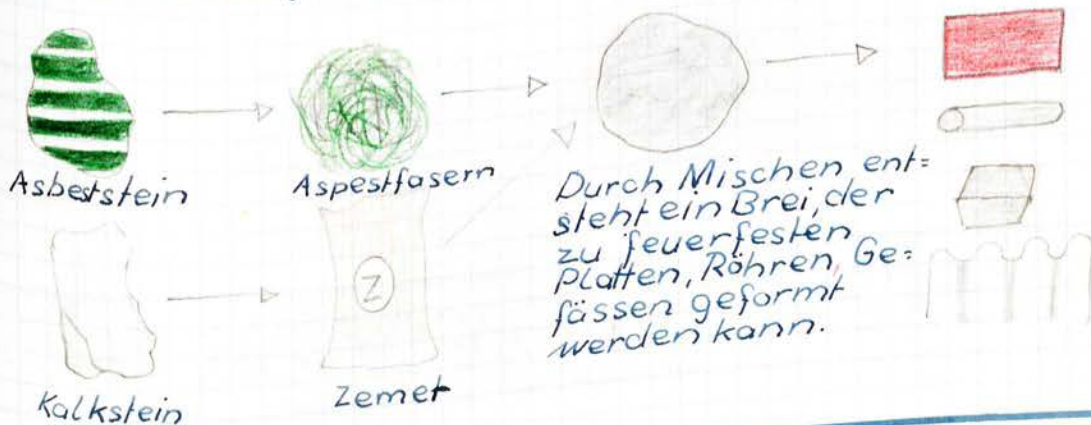 Asbeststein
Aspestfasern
Durch Mischen ent=
steht ein Brei, der
zu feuerfesten
Platten, Röhren, Ge=
fässen geformt
werden kann.
Z
Kalkstein
Zemet